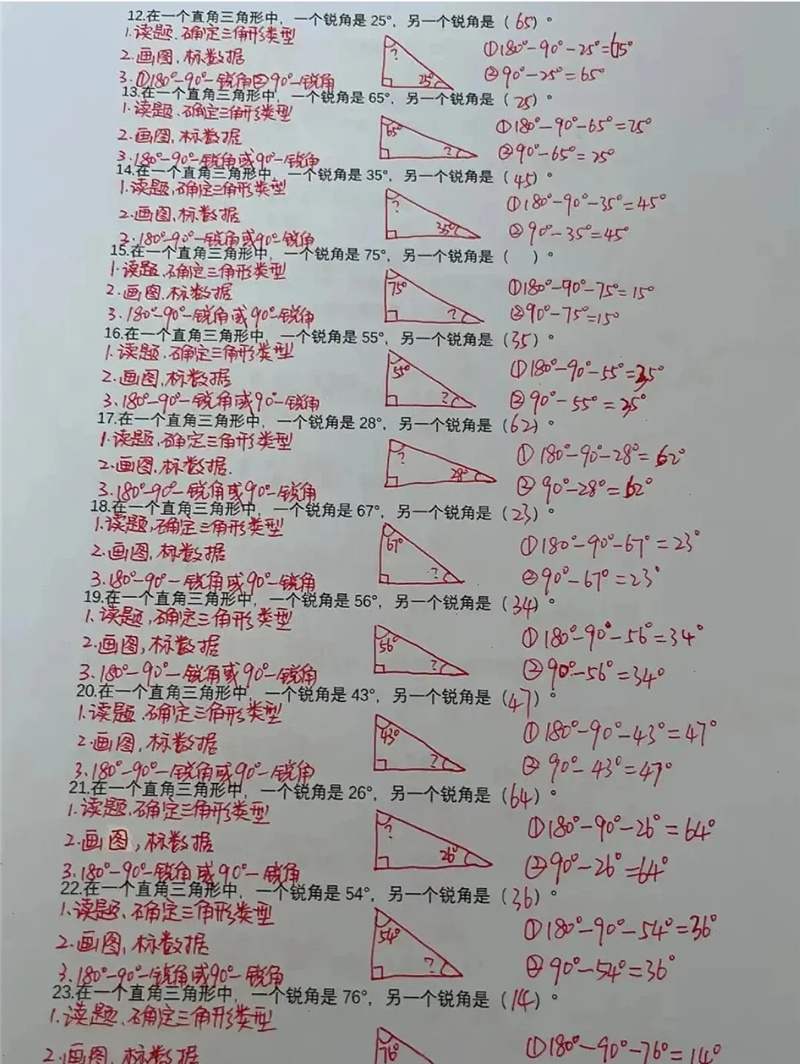 12.在一个直角三角形中，一个锐角是 25°，另一个锐角是（65）°
1.读题.确定三角形类型
2.画图，标数据
3.①180°-90°-锐角②90°-锐角
? 25°
①180°-90°-25°=65°
②90°-25°=65°
13.在一个直角三角形中，一个锐角是 65°，另一个锐角是（25）°
1.读题.确定三角形类型
2.画图，标数据
3.180°-90°-锐角或90°-锐角
65° ?
①180°-90°-65°=25°
②90°-65°=25°
14.在一个直角三角形中，一个锐角是 35°，另一个锐角是（45）°
1.读题，确定三角形类型
2.画图，标数据
2.180°-90°-锐角或90°-锐角
? 35°
①180°-90°-35°=45°
②90°-35°=45°
15.在一个直角三角形中，一个锐角是 75°，另一个锐角是（ ）°
1.读题.确定三角形类型
2.画图.标数据
3.180°-90°-锐角或90°-锐角
75° ?
①180°-90°-75°=15°
②90°-75°=15°
16.在一个直角三角形中，一个锐角是 55°，另一个锐角是（35）°
1.读题.确定三角形类型
2.画图，标数据
3.180°-90°-锐角或90°-锐角
55° ?
①180°-90°-55°=35°
②90°-55°=35°
17.在一个直角三角形中，一个锐角是 28°，另一个锐角是（62）°
1.读题，确定三角形类型
2.画图，标数据.
3.180°-90°-锐角或90°-锐角
? 28°
①180°-90°-28°=62°
②90°-28°=62°
18.在一个直角三角形中，一个锐角是 67°，另一个锐角是（23）°
1.读题，确定三角形类型
2.画图，标数据
3.180°-90°-锐角或90°-锐角
67° ?
①180°-90°-67°=23°
②90°-67°=23°
19.在一个直角三角形中，一个锐角是 56°，另一个锐角是（34）°
1.读题，确定三角形类型
2.画图，标数据
3.180°-90°-锐角或90°-锐角
56° ?
①180°-90°-56°=34°
②90°-56°=34°
20.在一个直角三角形中，一个锐角是 43°，另一个锐角是（47）°
1.读题.确定三角形类型
2.画图，标数据
3.180°-90°-锐角或90°-锐角
43° ?
①180°-90°-43°=47°
②90°-43°=47°
21.在一个直角三角形中，一个锐角是 26°，另一个锐角是（64）°
1.读题，确定三角形类型
2.画图，标数据
3.180°-90°-锐角或90°-锐角
? 26°
①180°-90°-26°=64°
②90°-26°=64°
22.在一个直角三角形中，一个锐角是 54°，另一个锐角是（36）°
1.读题.确定三角形类型
2.画图，标数据
3.180°-90°-锐角或90°-锐角
54° ?
①180°-90°-54°=36°
②90°-54°=36°
23.在一个直角三角形中，一个锐角是 76°，另一个锐角是（14）°
1.读题.确定三角形类型
2.画图，标数据
76°
①180°-90°-76°=14°